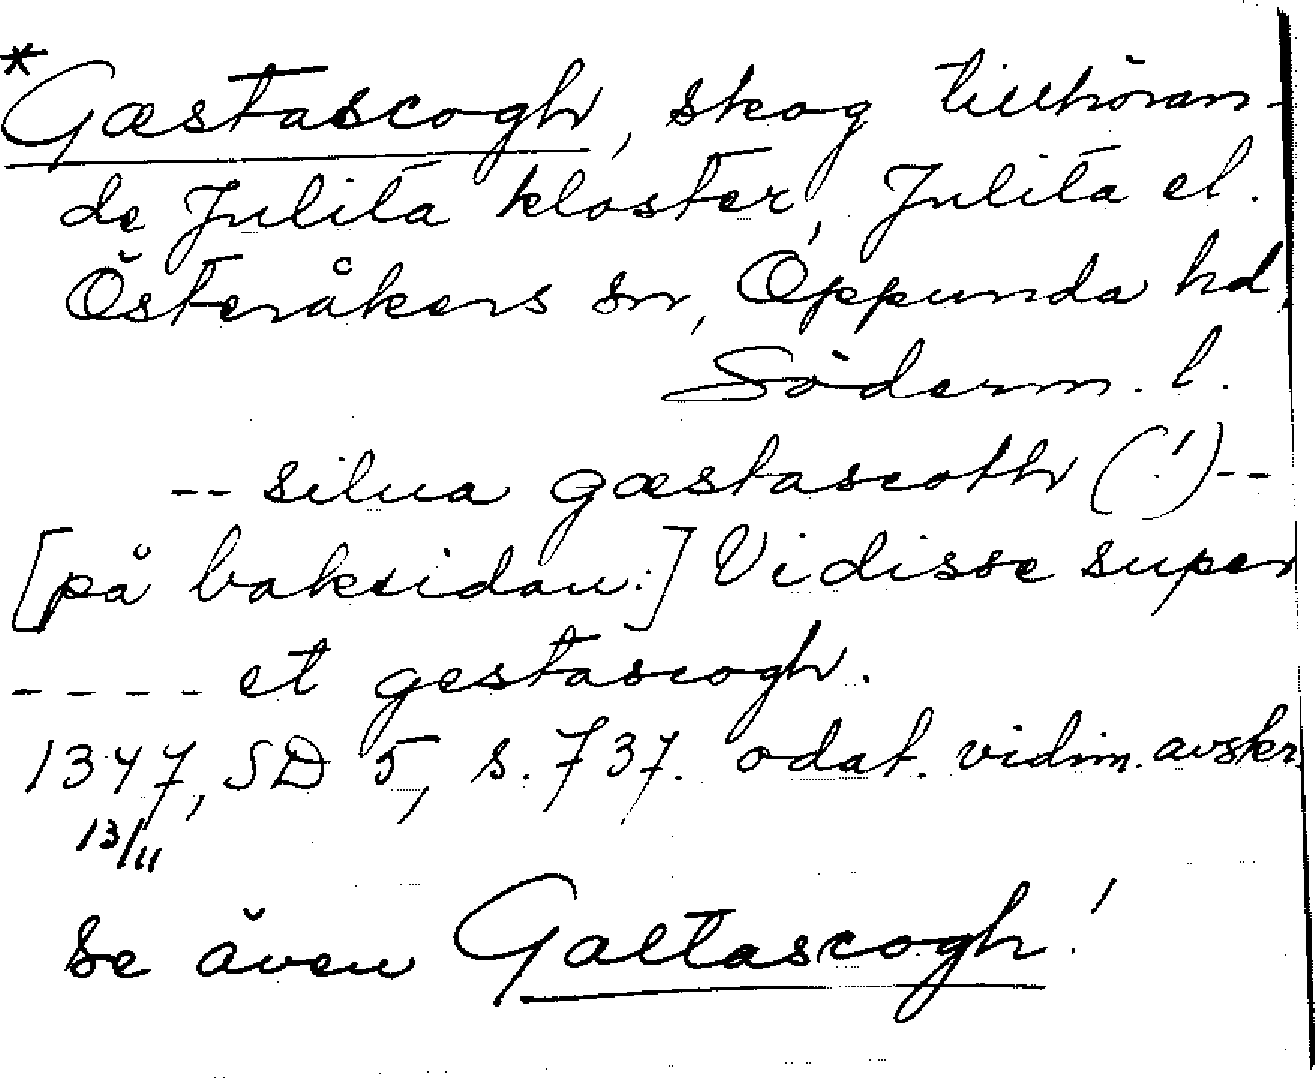 *Gæstascogh, skog tillhöran-
de Julita kloster, Julita el.
Österåkers sn, Oppunda hd,
Söderm. l.
-- silua gæstascoth (!) --
[på baksidan:] Vidisse super
---- et gestascogh.
1347, SD 5, s. 737. odat. vidim. avskr.
13/11
Se även Galtascogh!